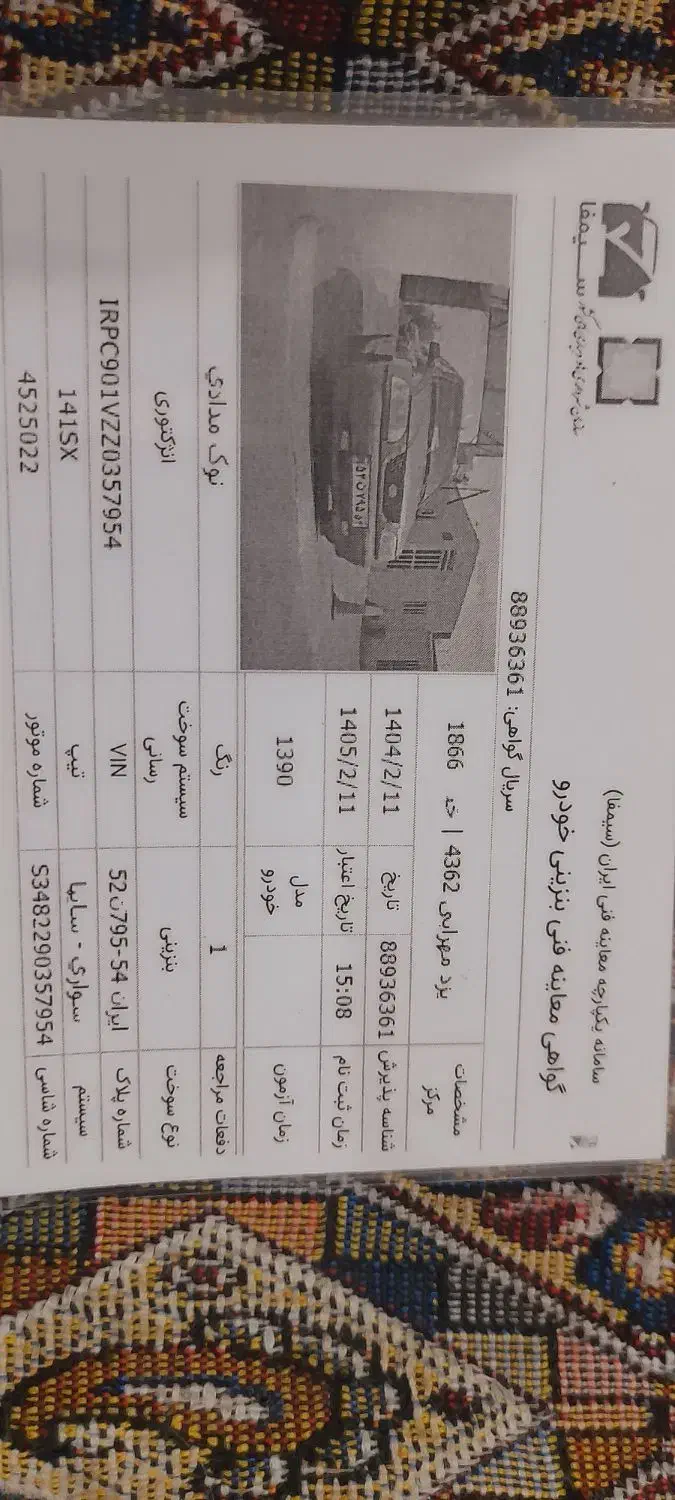 سامانه یکپارچه معاینه فنی ایران (سیمفا)
گواهی معاینه فنی بنزینی خودرو
سیمفا
سریال گواهی: 88936361
مشخصات مرکز
یزد مهرابی 4362 | خ 1866
شناسه پذیرش 88936361 تاریخ 1404/2/11
زمان ثبت نام 15:08 تاریخ اعتبار 1405/2/11
زمان آزمون مدل خودرو 1390
۵۲ن۷۹۵ ۵۴
دفعات مراجعه 1 رنگ نوک مدادي
نوع سوخت بنزینی سیستم سوخت رسانی انژکتوری
شماره پلاک ایران 54-795ن52 VIN IRPC901VZZ0357954
سیستم سواري - سایپا تیپ 141SX
شماره شاسی S3482290357954 شماره موتور 4525022